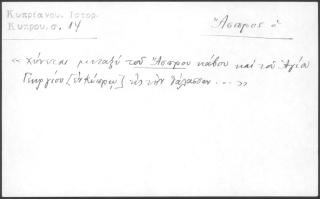 Κυπριανου. Ιστορ.
Κυπρου. σ. 14
Ἄσπρος ὁ
« Χύνεται μεταξὺ τοῦ Ἄσπρου κάβου καὶ τοῦ Ἁγίου
Γεωργίου [ἐν Κύπρῳ] εἰς τὴν θάλασσαν ... »